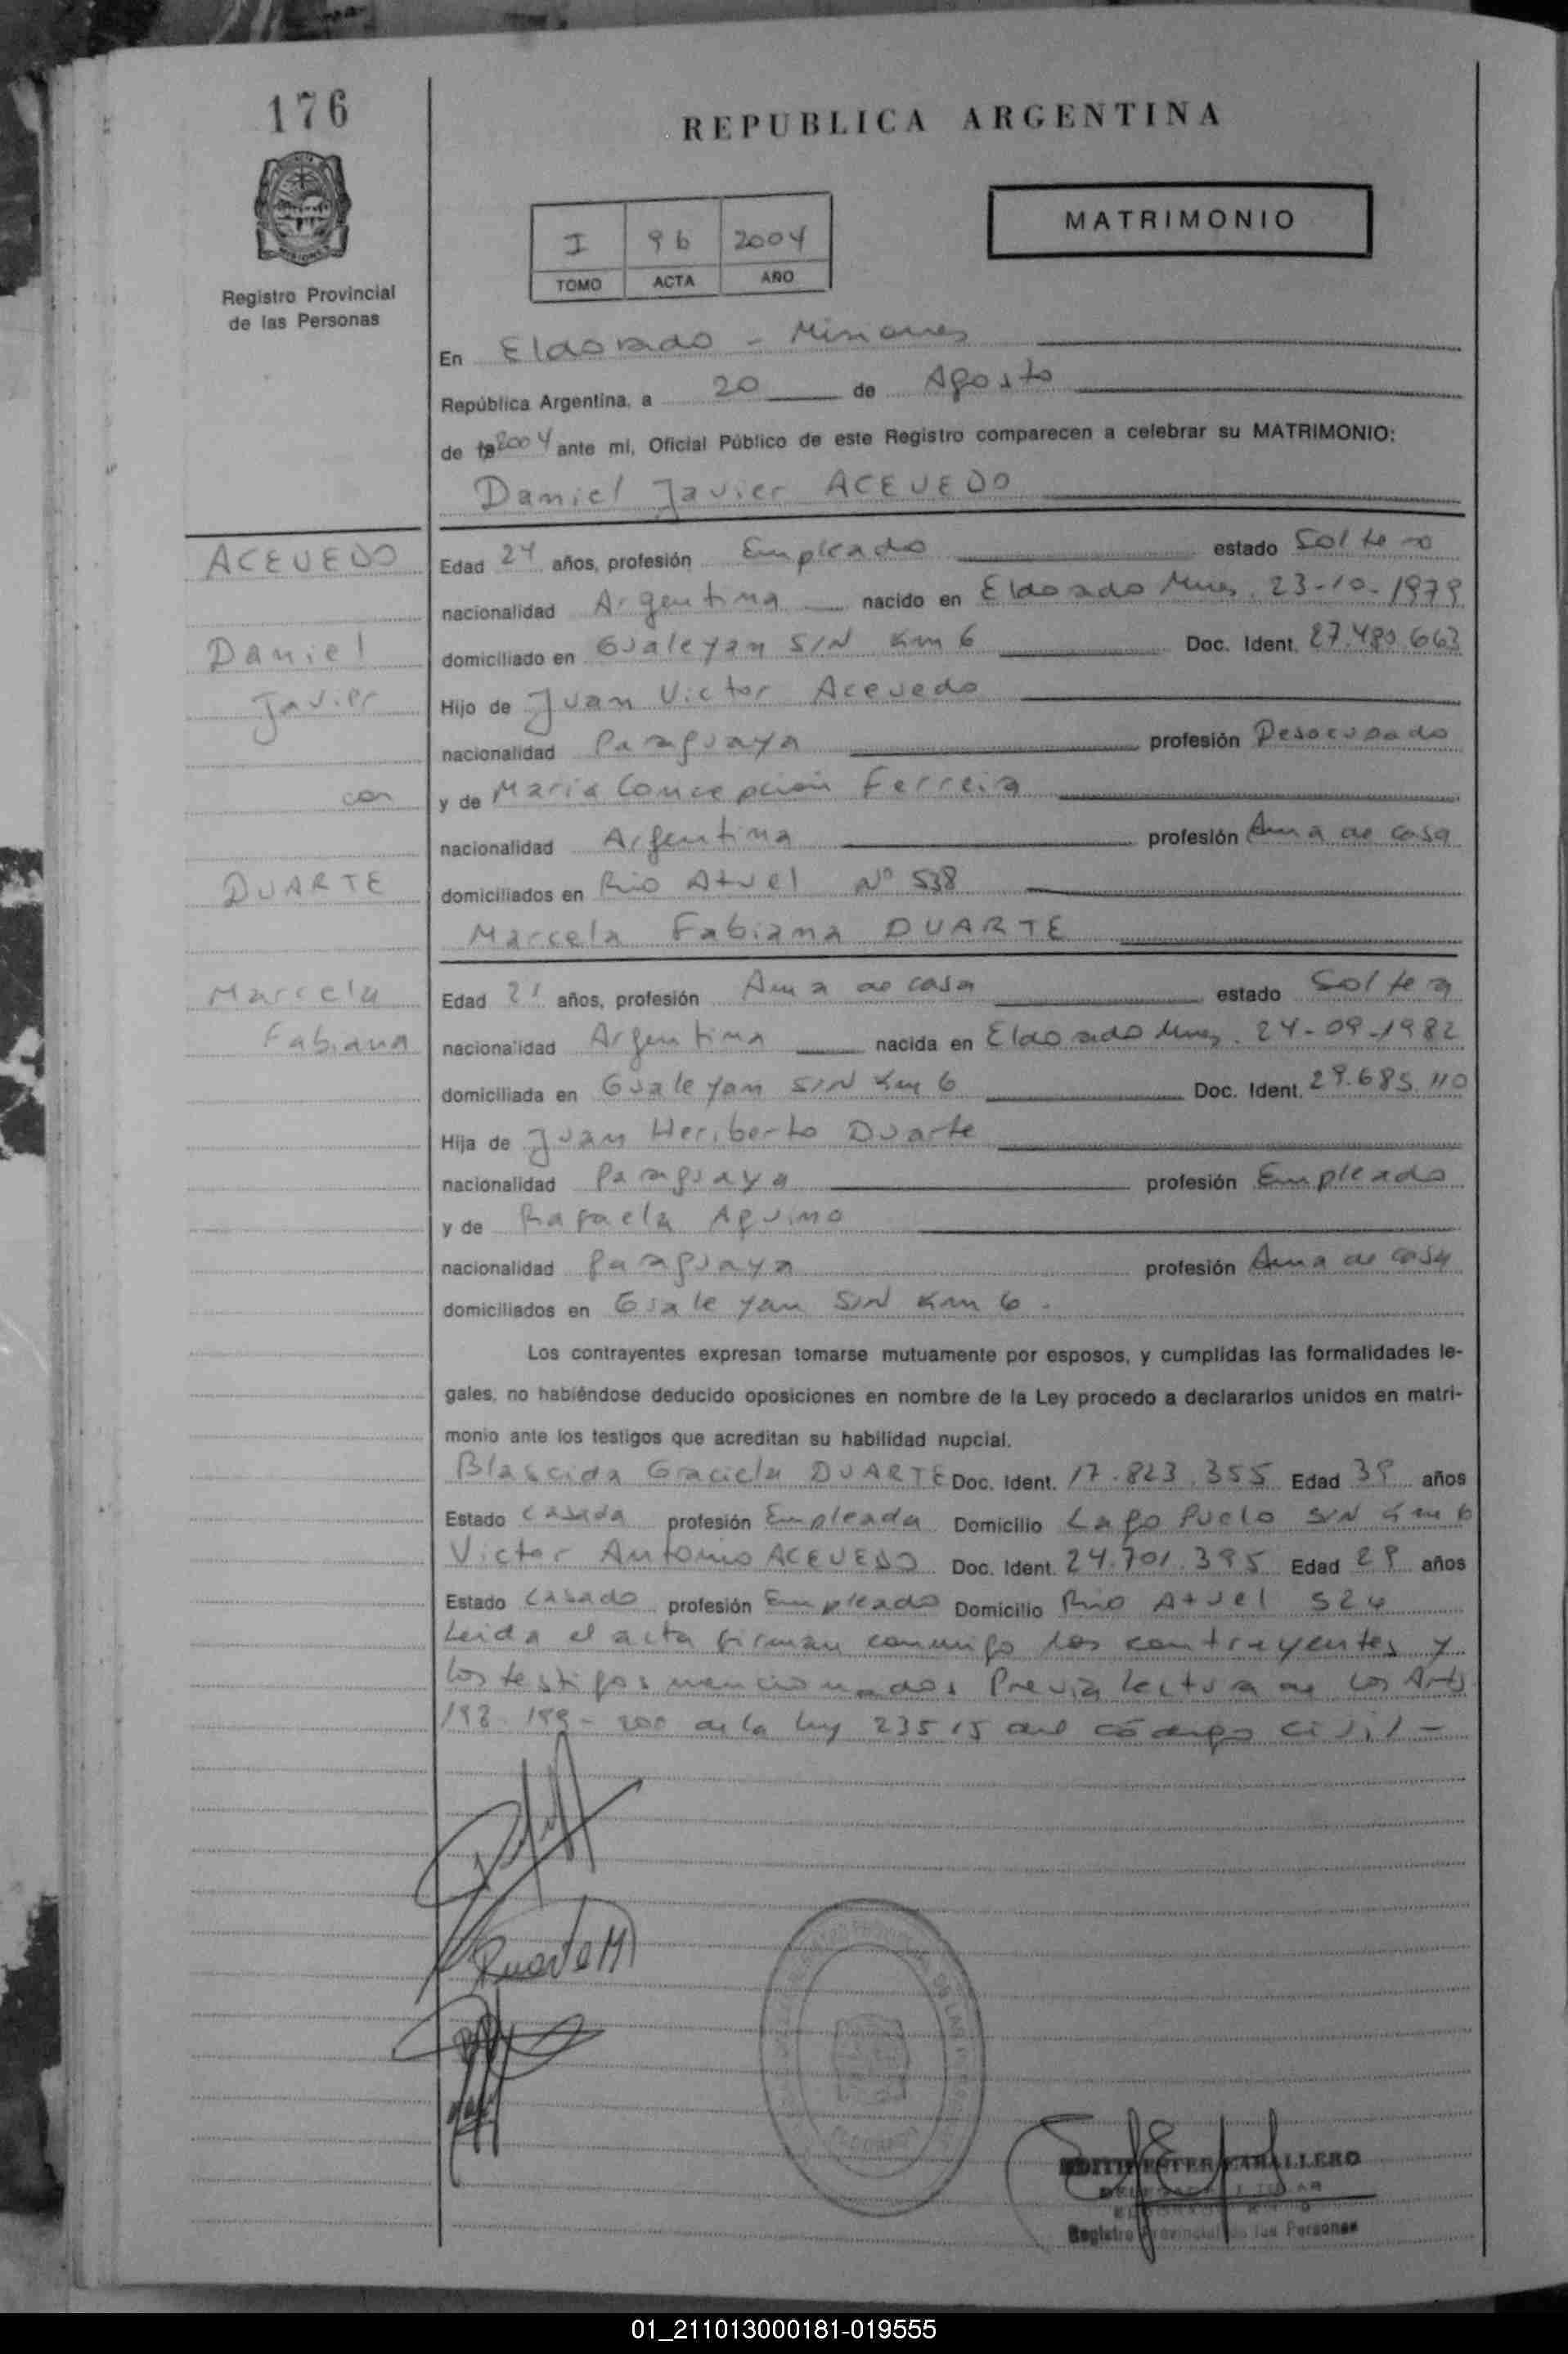 176
REPUBLICA ARGENTINA
MATRIMONIO
I 96 2004
TOMO ACTA AÑO
Registro Provincial
de las Personas
En Eldorado - Misiones
República Argentina, a 20 de Agosto
de 19 2004 ante mi, Oficial Público de este Registro comparecen a celebrar su MATRIMONIO:
Daniel Javier ACEVEDO
ACEVEDO
Daniel
Javier
con
DUARTE
Marcela
Fabiana
Edad 24 años, profesión Empleado estado Soltero
nacionalidad Argentina nacido en Eldorado Mnes. 23-10-1979
domiciliado en Gualeyan S/N Km 6 Doc. Ident. 27.480.663
Hijo de Juan Victor Acevedo
nacionalidad Paraguaya profesión Desocupado
y de Maria Concepción Ferreira
nacionalidad Argentina profesión Ama de casa
domiciliados en Rio Atuel Nº 538
Marcela Fabiana DUARTE
Edad 21 años, profesión Ama de casa estado Soltera
nacionalidad Argentina nacida en Eldorado Mnes. 24-09-1982
domiciliada en Gualeyan S/N Km 6 Doc. Ident. 29.685.110
Hija de Juan Heriberto Duarte
nacionalidad Paraguaya profesión Empleado
y de Rafaela Aquino
nacionalidad Paraguaya profesión Ama de casa
domiciliados en Gualeyan S/N Km 6.
Los contrayentes expresan tomarse mutuamente por esposos, y cumplidas las formalidades le-
gales, no habiéndose deducido oposiciones en nombre de la Ley procedo a declararlos unidos en matri-
monio ante los testigos que acreditan su habilidad nupcial.
Blascida Graciela DUARTE Doc. Ident. 17.823.355 Edad 39 años
Estado Casada profesión Empleada Domicilio Lago Puelo S/N Km 6
Victor Antonio ACEVEDO Doc. Ident. 24.701.395 Edad 29 años
Estado Casado profesión Empleado Domicilio Rio Atuel 524
Leida el acta firman conmigo los contrayentes y
los testigos mencionados Previa lectura de los Arts
198-199-200 de la ley 23515 del código civil -
Duarte M
EDITH ESTER CABALLERO
Registro Provincial de las Personas
01_211013000181-019555